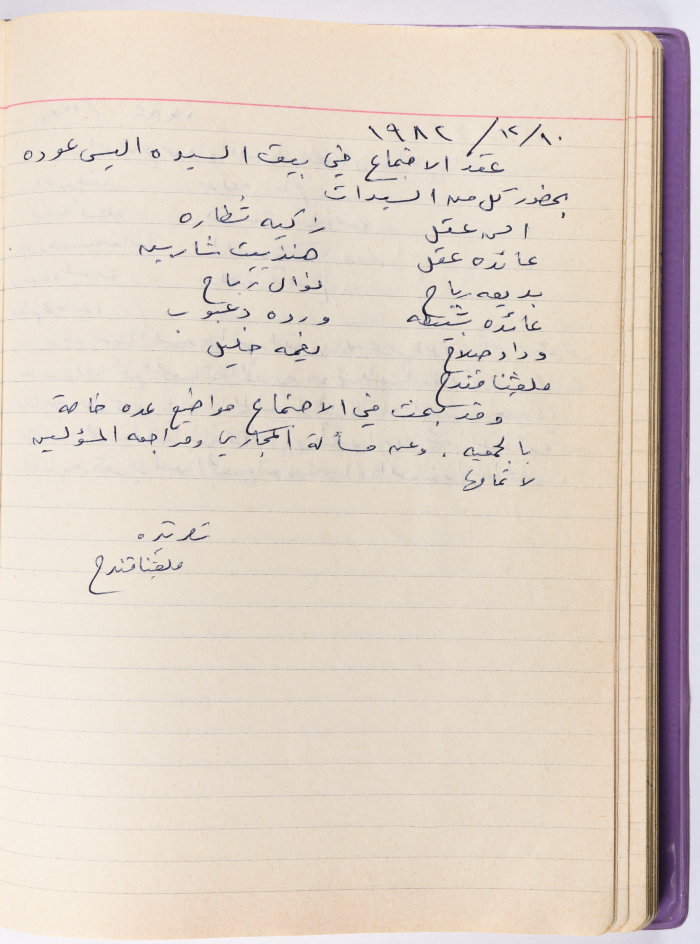 ١٩٨٢ /١٢/١٠
عقد الاجتماع في بيت السيده اليس عوده
بحضور كل من السيدات
امن عقل زكيه شطاره
عائده عقل هنرييت شاربين
بديعه رباح نوال رباح
عائده بشيطه ورده دعبوب
وداد صلاح نعمه خليل
ملفينا قندح
وقد بحث في الاجتماع مواضيع عده خاصة
بالجمعيه . وعن مسألة المجاري ومراجعه المسؤلين
لاتمامها
ملفينا قندح